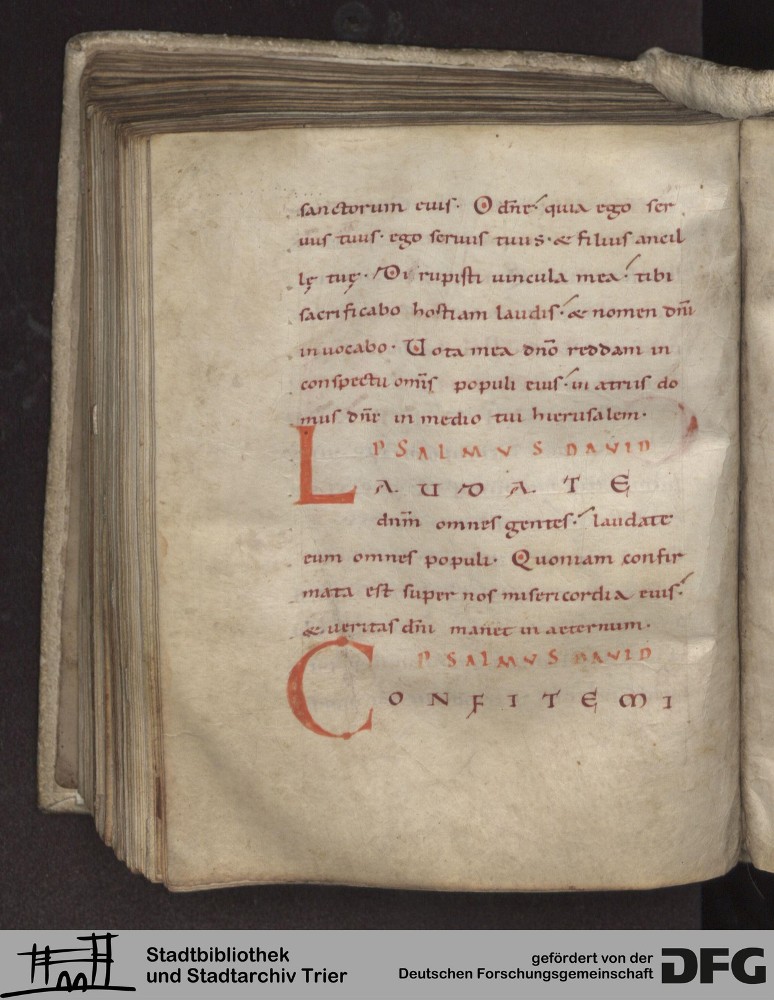 sanctorum eius. O dn̄e quia ego ser
uus tuus. ego seruus tuus. & filius ancil
lę tuę. Di rupisti uincula mea. tibi
sacrificabo hostiam laudis. & nomen dn̄i
inuocabo. Uota mea dn̄o reddam in
conspectu om̄is populi eius. in atriis do
mus dn̄i in medio tui hierusalem.
PSALMVS DAVID
LAUDATE
dn̄m omnes gentes. laudate
eum omnes populi. Quoniam confir
mata est super nos misericordia eius.
& ueritas dn̄i manet in aeternum.
PSALMVS DAVID
CONFITEMI
Stadtbibliothek
und Stadtarchiv Trier
gefördert von der
Deutschen Forschungsgemeinschaft
DFG